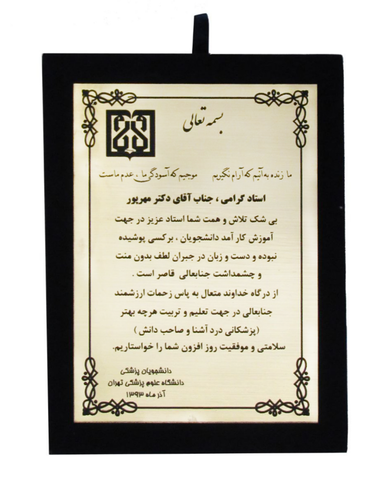 بسمه تعالی
ما زنده به آنیم که آرام نگیریم موجیم که آسودگی ما، عدم ماست
استاد گرامی ، جناب آقای دکتر مهرپور
بی شک تلاش و همت شما استاد عزیز در جهت
آموزش کار آمد دانشجویان ، برکسی پوشیده
نبوده و دست و زبان در جبران لطف بدون منت
و چشمداشت جنابعالی قاصر است .
از درگاه خداوند متعال به پاس زحمات ارزشمند
جنابعالی در جهت تعلیم و تربیت هرچه بهتر
(پزشکانی درد آشنا و صاحب دانش )
سلامتی و موفقیت روز افزون شما را خواستاریم.
دانشجویان پزشکی
دانشگاه علوم پزشکی تهران
آذر ماه ۱۳۹۳